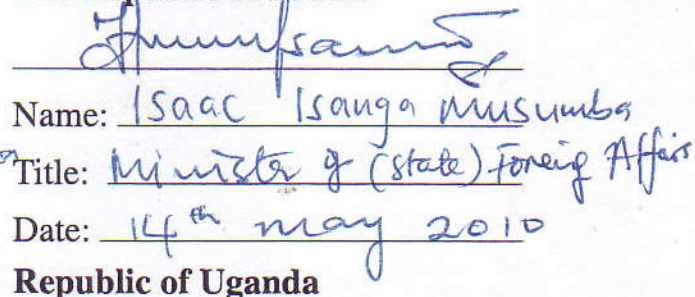 Name: Isaac Isanga Musumba
Title: Minister of (State) Foreing Affairs
Date: 14th may 2010
Republic of Uganda